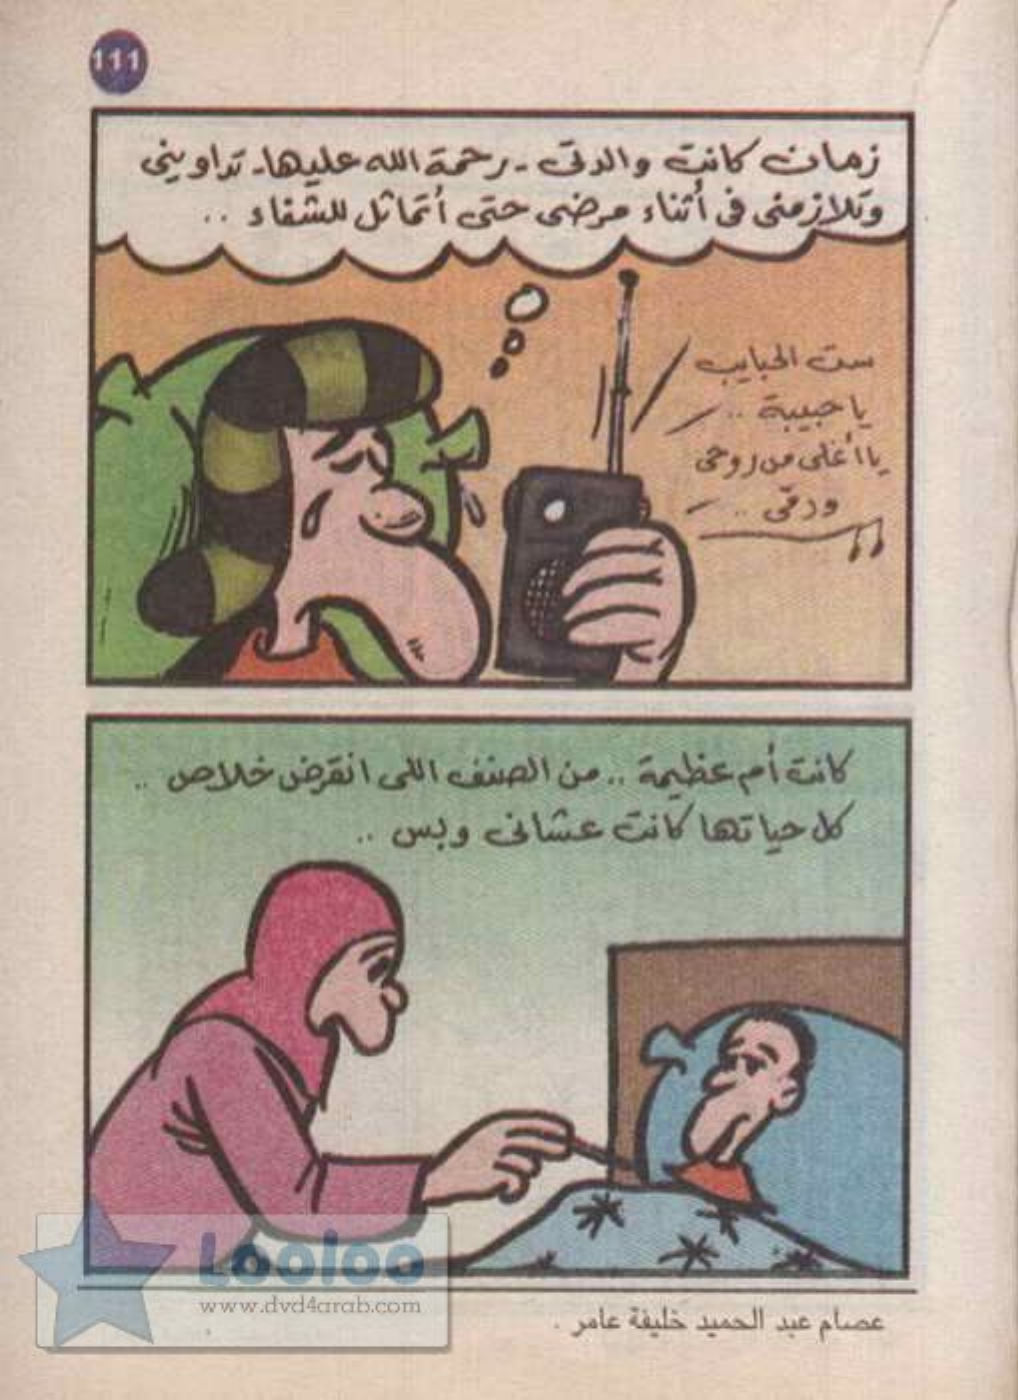 111
زمان كانت والدتى - رحمة الله عليها - تداوينى
وتلازمنى فى أثناء مرضى حتى أتماثل للشفاء ..
ست الحبايب
يا حبيبة ..
يا أغلى من روحى
ودمى ..
كانت أم عظيمة .. من الصنف اللى انقرض خلاص ..
كل حياتها كانت عشانى وبس ..
Looloo
www.dvd4arab.com
عصام عبد الحميد خليفة عامر .